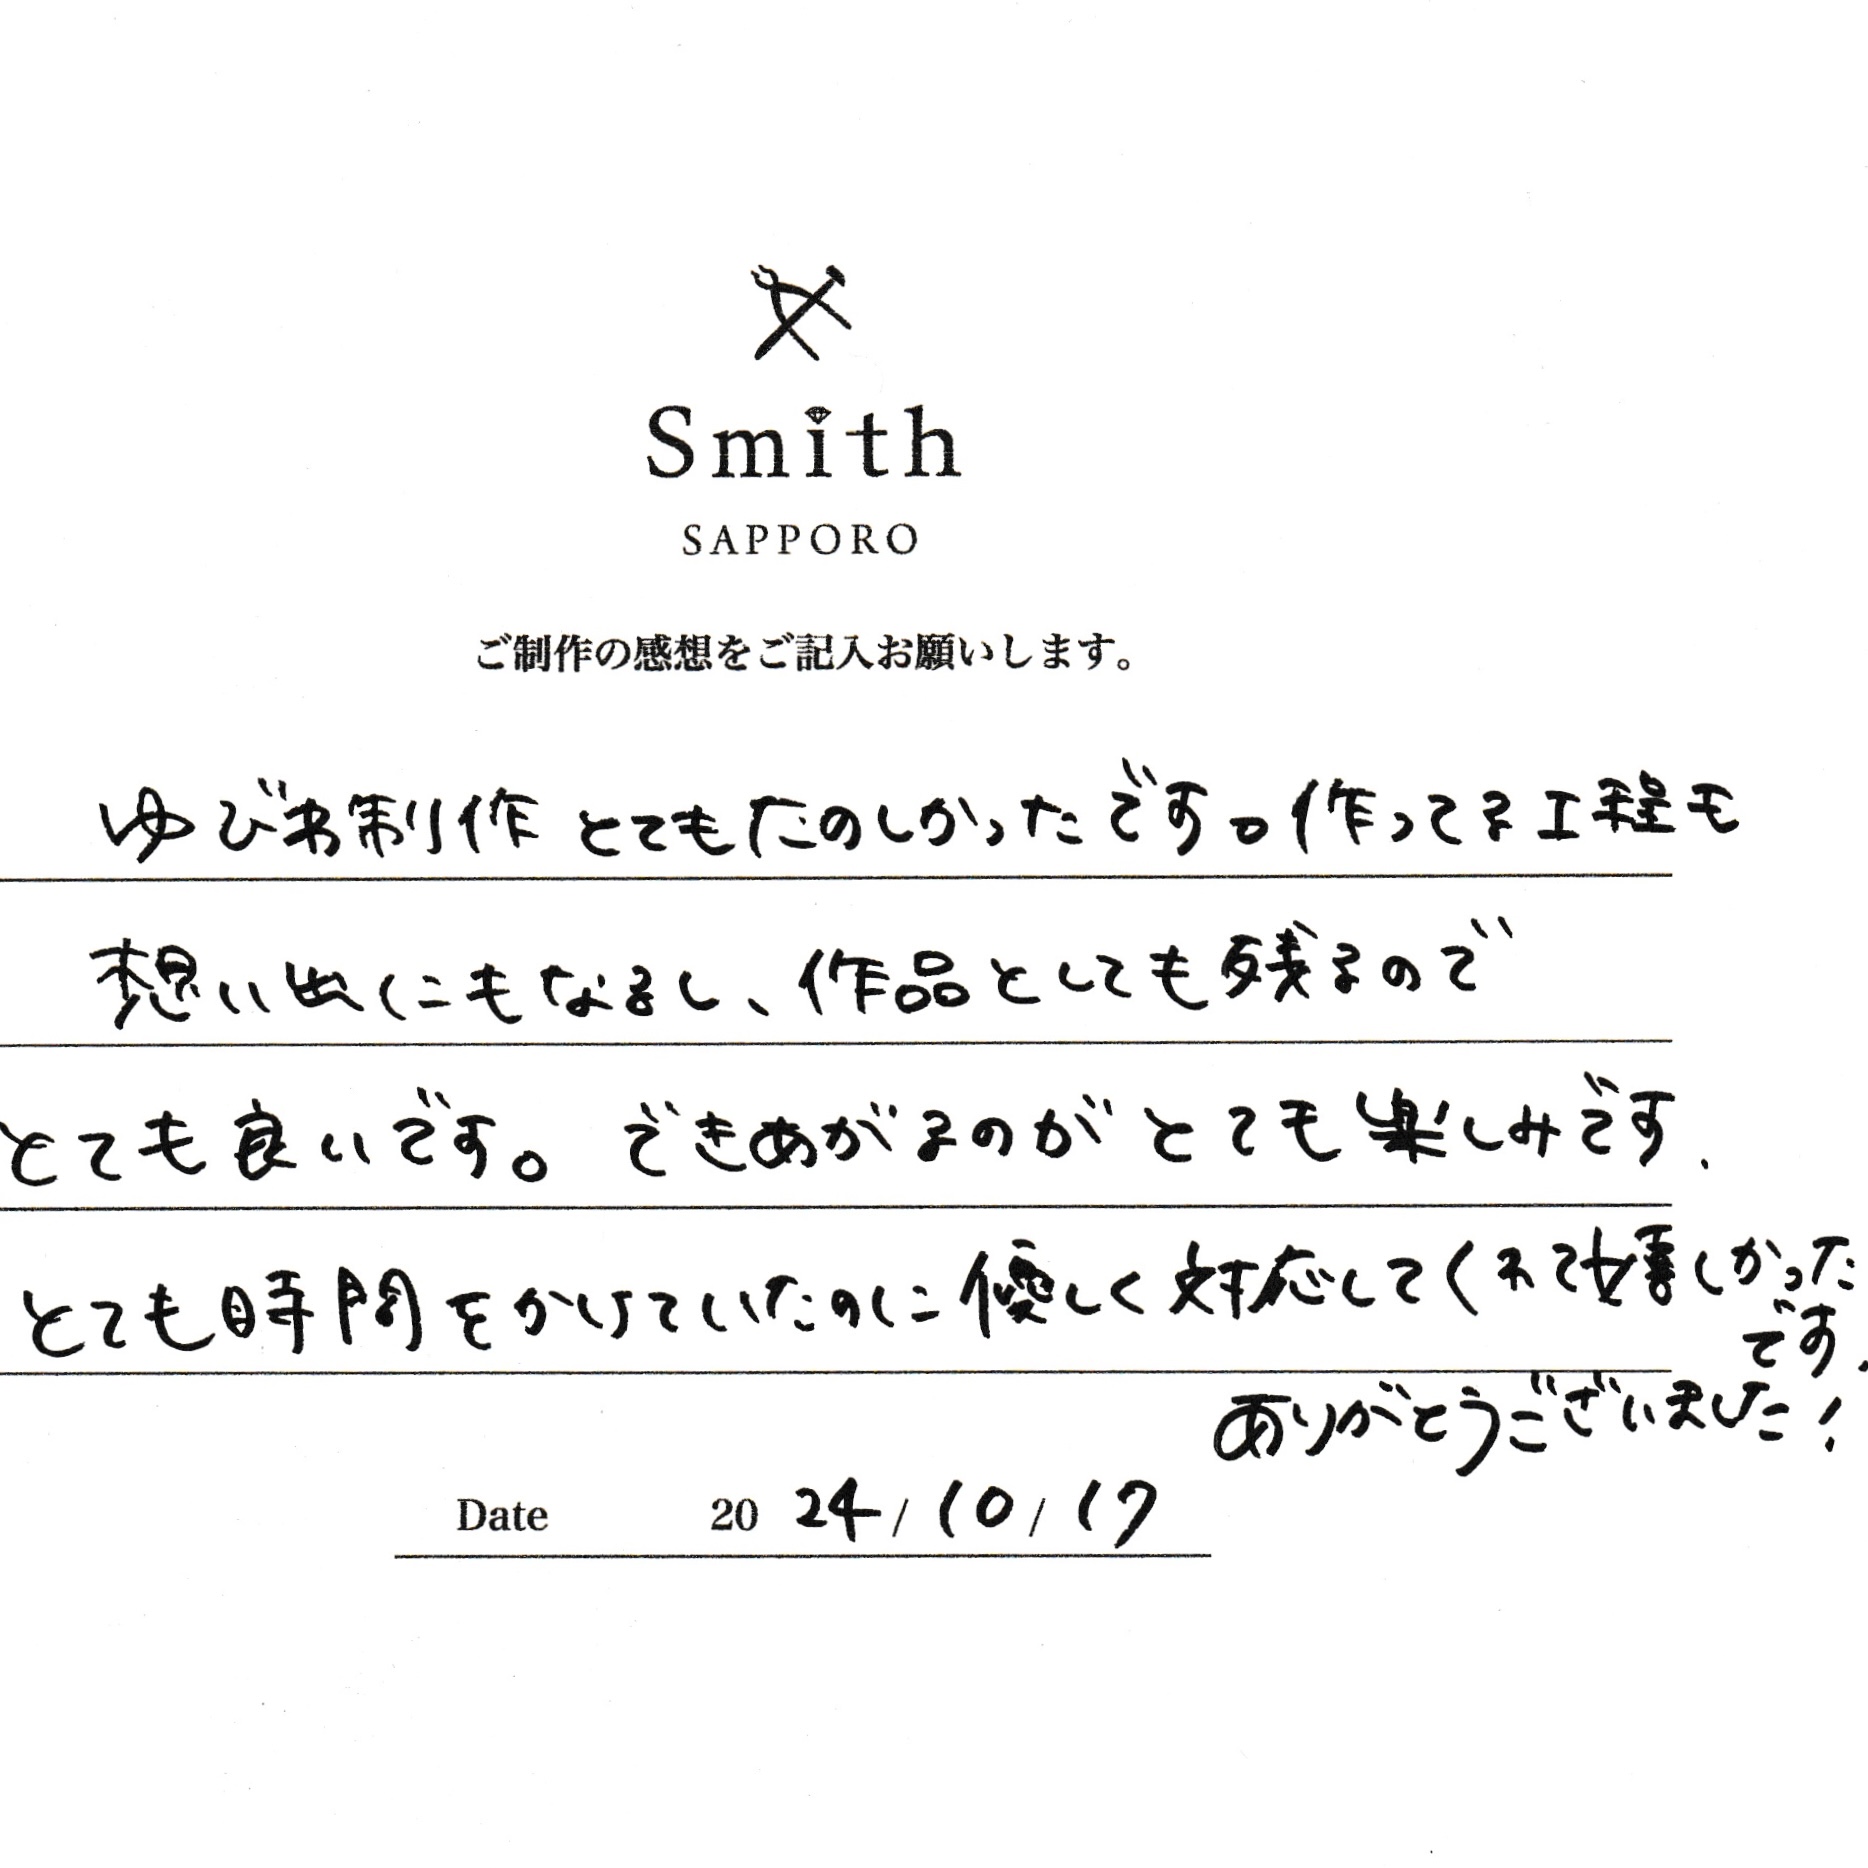 Smith
SAPPORO
ご制作の感想をご記入お願いします。
ゆびわ制作とてもたのしかったです。作ってる工程も
想い出にもなるし、作品としても残るので
とても良いです。できあがるのがとても楽しみです.
とても時間をかけていたのに優しく対応してくれて嬉しかった
です.
ありがとうございました!
Date 20 24/10/17